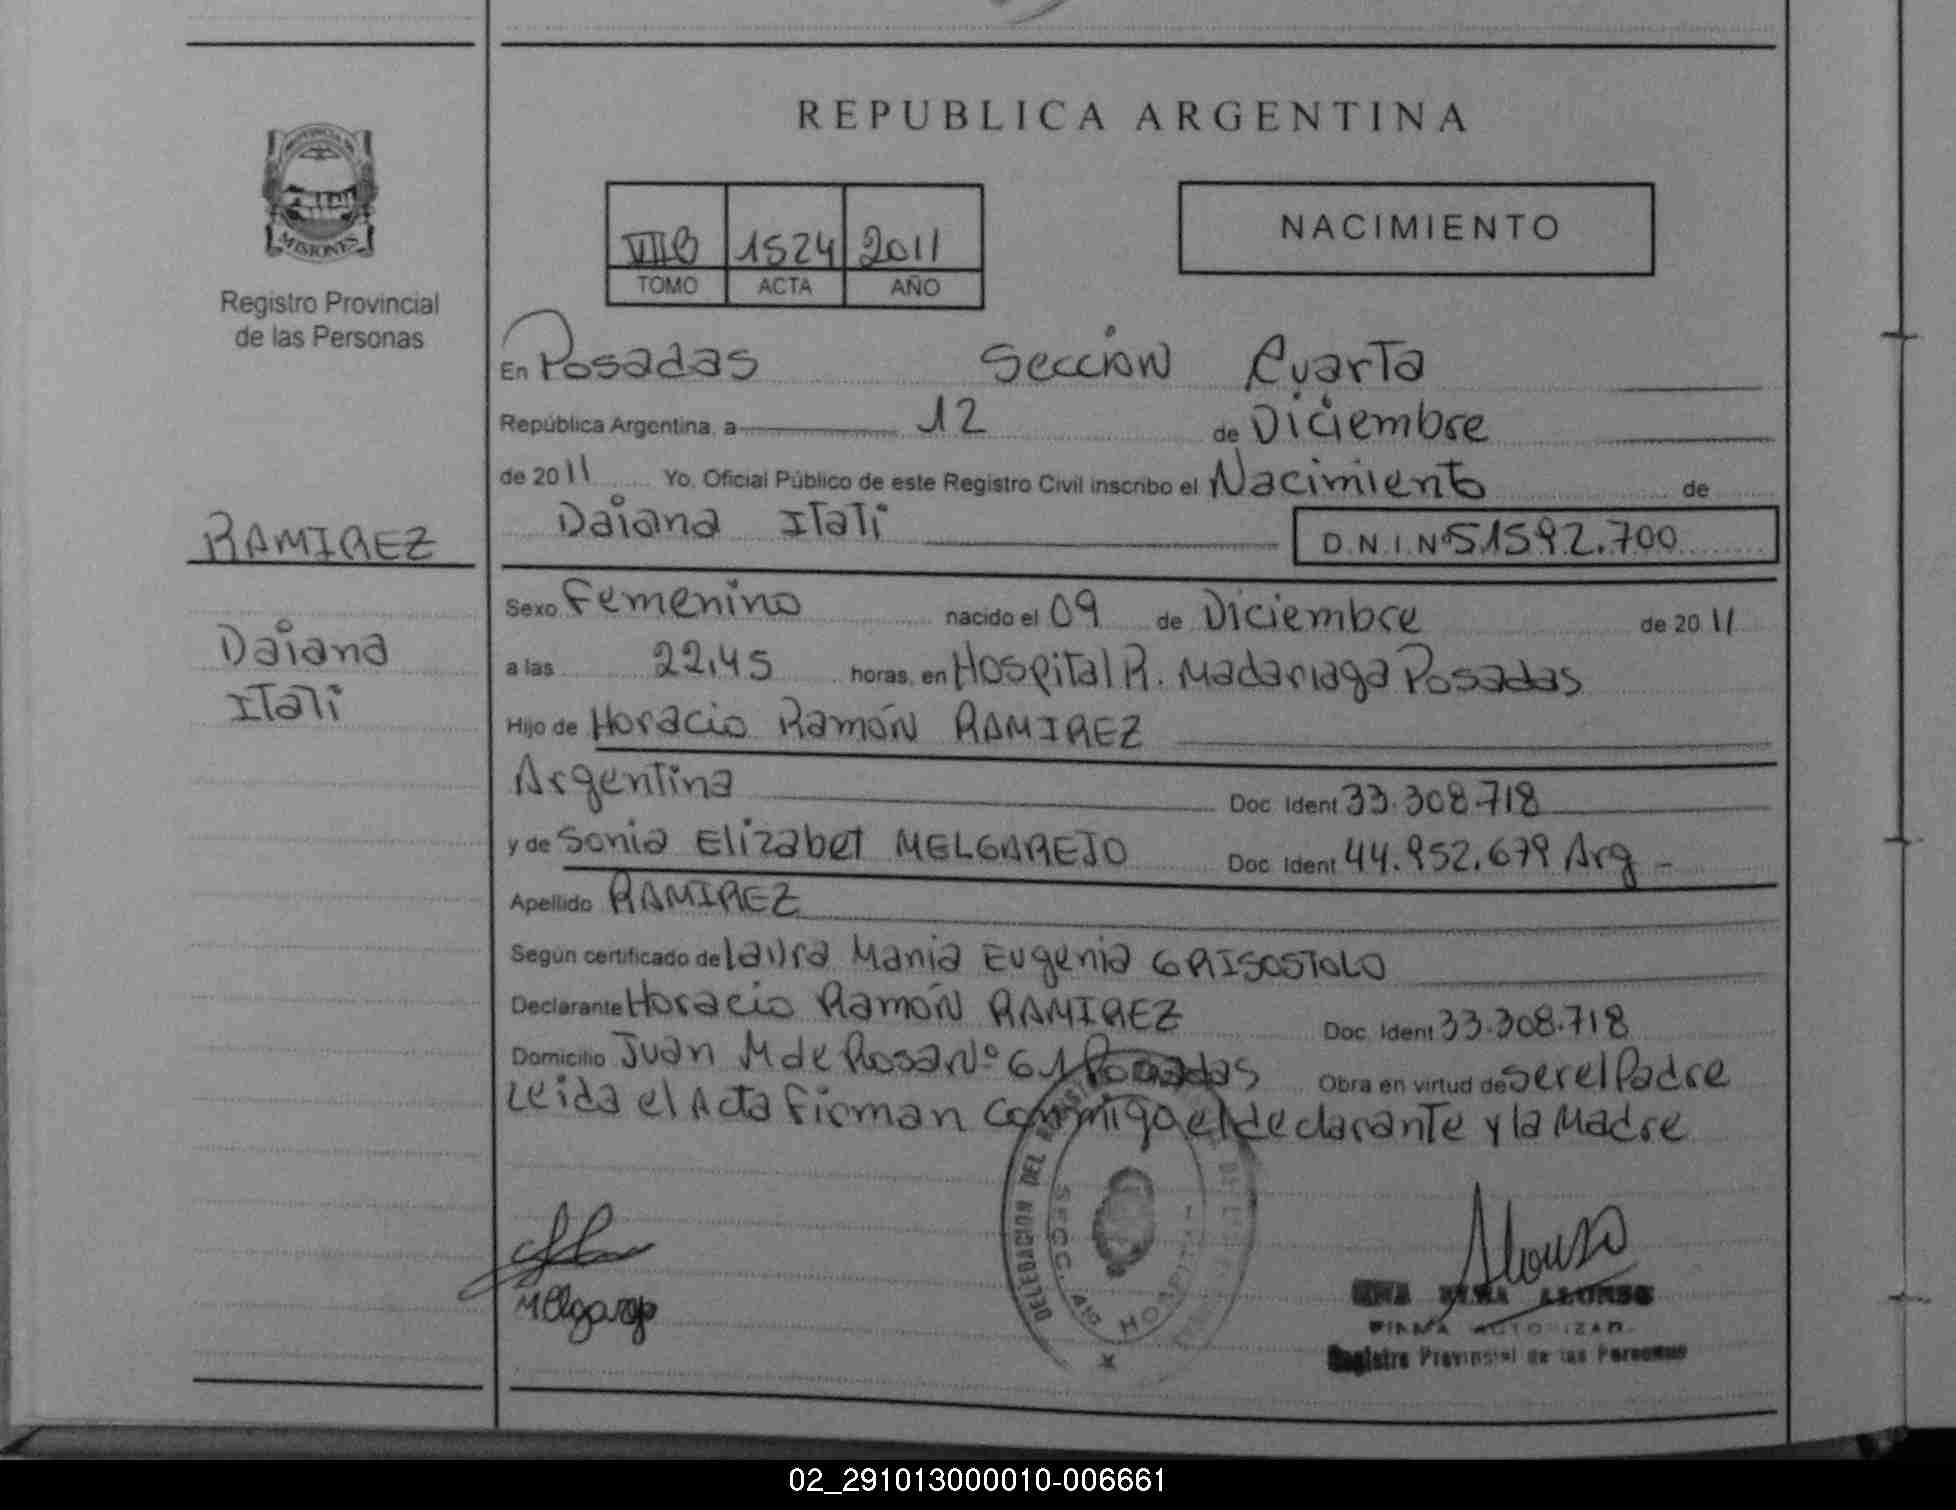 REPUBLICA ARGENTINA
PROVINCIA DE
MISIONES
Registro Provincial
de las Personas
VIIB 1524 2011
TOMO ACTA AÑO
NACIMIENTO
En Posadas Sección Cuarta
República Argentina, a 12 de Diciembre
de 2011 Yo, Oficial Público de este Registro Civil inscribo el Nacimiento de
Daiana Itati D.N.I.Nº 51592.700
RAMIREZ
Daiana
Itati
Sexo Femenino nacido el 09 de Diciembre de 2011
a las 22,45 horas, en Hospital R. Madariaga Posadas
Hijo de Horacio Ramón RAMIREZ
Argentina Doc. Ident 33.308.718
y de Sonia Elizabet MELGAREJO Doc. Ident 44.952.679 Arg -
Apellido RAMIREZ
Según certificado de Laura Maria Eugenia GRISOSTOLO
Declarante Horacio Ramón RAMIREZ Doc. Ident 33.308.718
Domicilio Juan M de Rosa Nº 61 Posadas Obra en virtud de ser el Padre
Leida el Acta firman conmigo el declarante y la Madre
Melgarejo
DELEGACION DEL
SECC. 4ta HOSPITAL
Alonso
ALONSO
FIRMA AUTORIZAD
Registro Provincial de las Personas
02_291013000010-006661